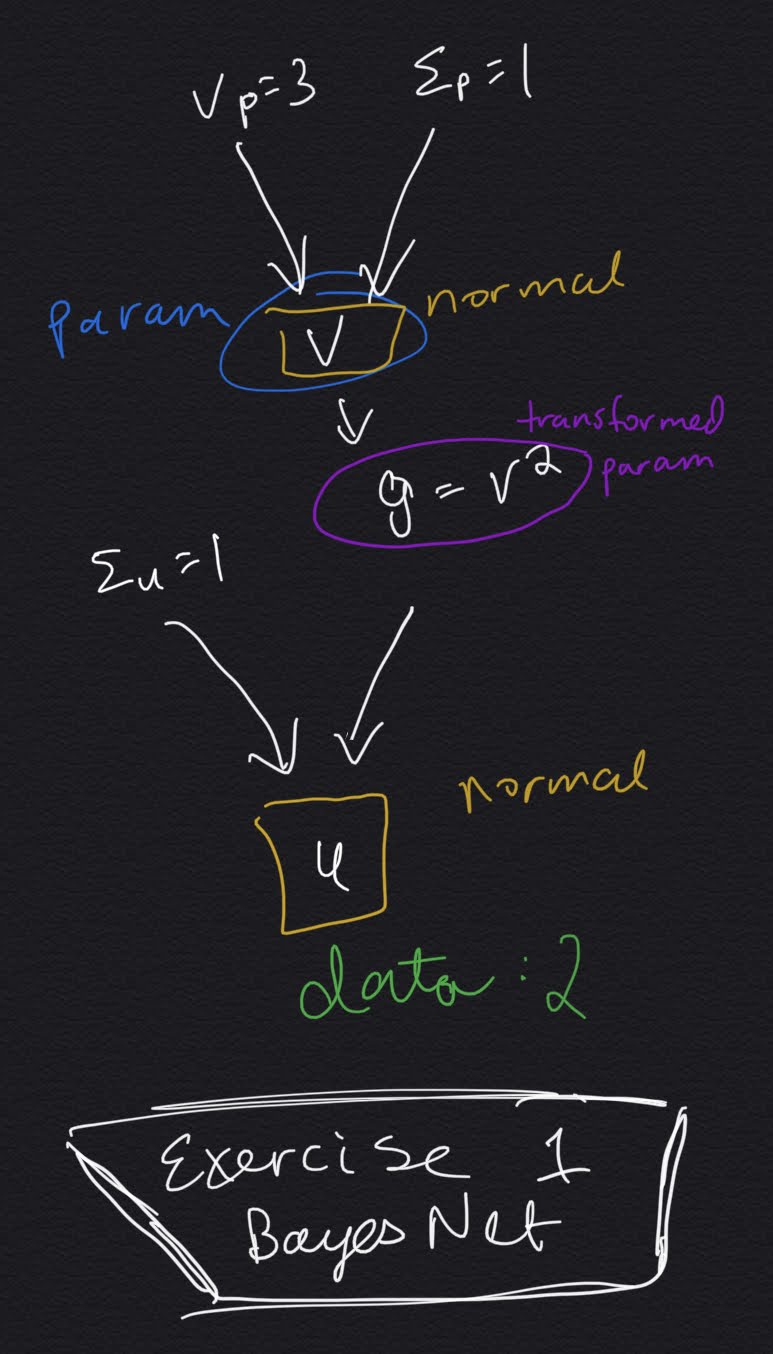 v_p=3 Σ_p=1
param v normal
transformed
g = v² param
Σ_u=1
normal
u
data : 2
Exercise 1
Bayes Net